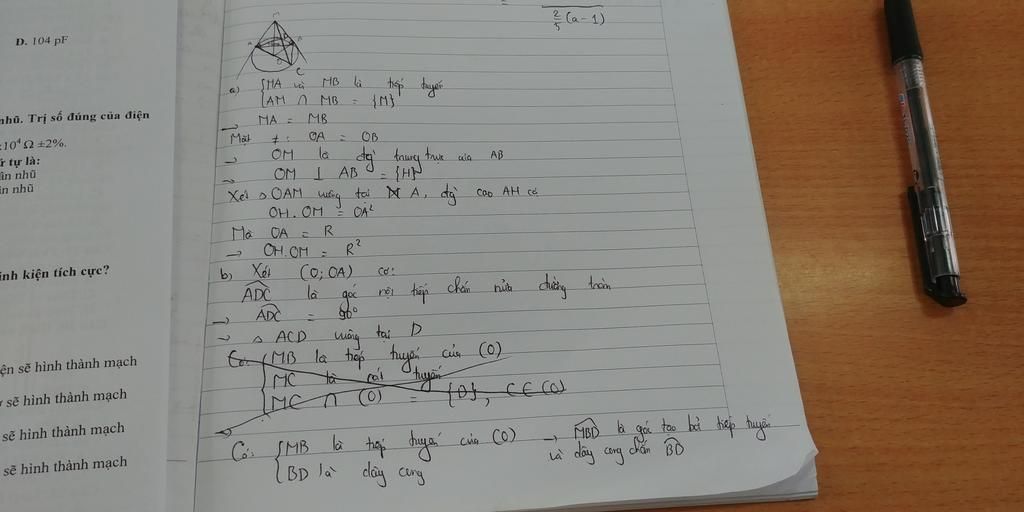 D. 104 pF
nhũ. Trị số đúng của điện
:10⁴ Ω ±2%.
ứ tự là:
ân nhũ
in nhũ
inh kiện tích cực?
ện sẽ hình thành mạch
sẽ hình thành mạch
sẽ hình thành mạch
sẽ hình thành mạch
=
2/5 (a-1)
C
a) {MA và MB là tiếp tuyến
{AM ∩ MB = {M}
→ MA = MB
Mặt ≠: OA = OB
→ OM là đg² trung trực của AB
→ OM ⊥ AB = {H}
Xét △ OAM vuông tại A, đg² cao AH có
OH.OM = OA²
Mà OA = R
→ OH.OM = R²
b, Xét (O; OA) có:
ADC là góc nội tiếp chắn nửa đường tròn
→ ADC = 90°
→ △ ACD vuông tại D
Có: {MB là tiếp tuyến của (O)
{MC là cát tuyến
{MC ∩ (O) = {D}, C ∈ (O)
→
Có: {MB là tiếp tuyến của (O) → MBD là góc tạo bởi tiếp tuyến
{BD là dây cung và dây cung chắn BD